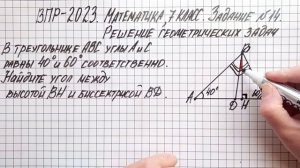 ВПР-2023. Математика, 7 класс. Задание №14.
Решение геометрических задач
В треугольнике ABC углы A и C
равны 40° и 60° соответственно.
Найдите угол между
высотой BH и биссектрисой BD.
B
A 40° 60°
D H